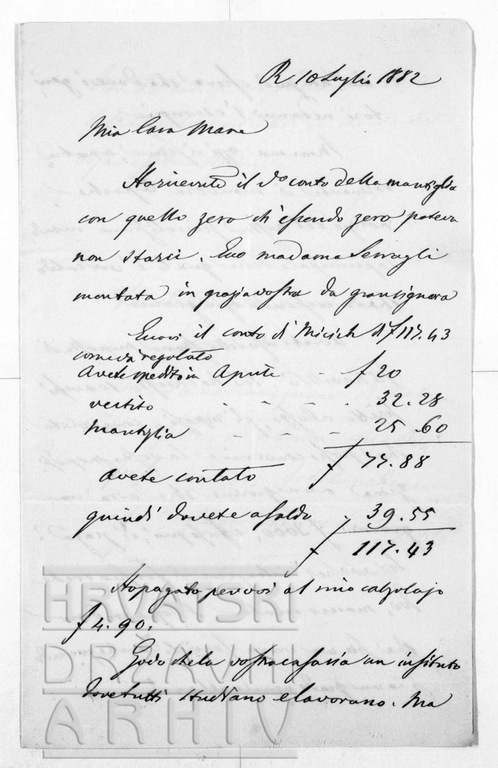 R 10 Luglio 1882
Mia Cara Mare
Ho ricevuto il Vo conto della mantiglia
con quello zero ch'essendo zero poteva
non starci. Ecco madama
montata in grazia vostra da gran signora
Eccovi il conto di Micich di f 117.43
come va regolato
Avete spedito in Aprile f 20
vestito - - - 32.28
Mantiglia - - - 25.60
f 77.88
avete contato
quindi dovete a saldo f 39.55
f 117.43
Ho pagato per voi al mio calzolajo
f 4.90.
Godo che la vostra casa sia un instituto
dove tutti studiano e lavorano. Ma
HRVATSKI
DRŽAVNI
ARHIV